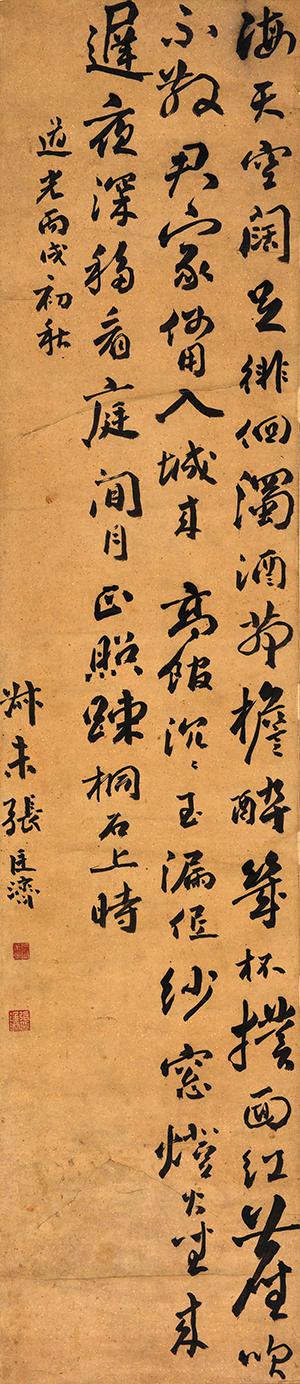 海天空闊足徘徊濁酒茆檐醉幾杯撲面紅塵吹
不散君家何用入城來高館沉沉玉漏低紗窗燈火坐來
遲夜深移看庭間月正照疎桐石上時
道光丙戌初秋
叔未張廷濟